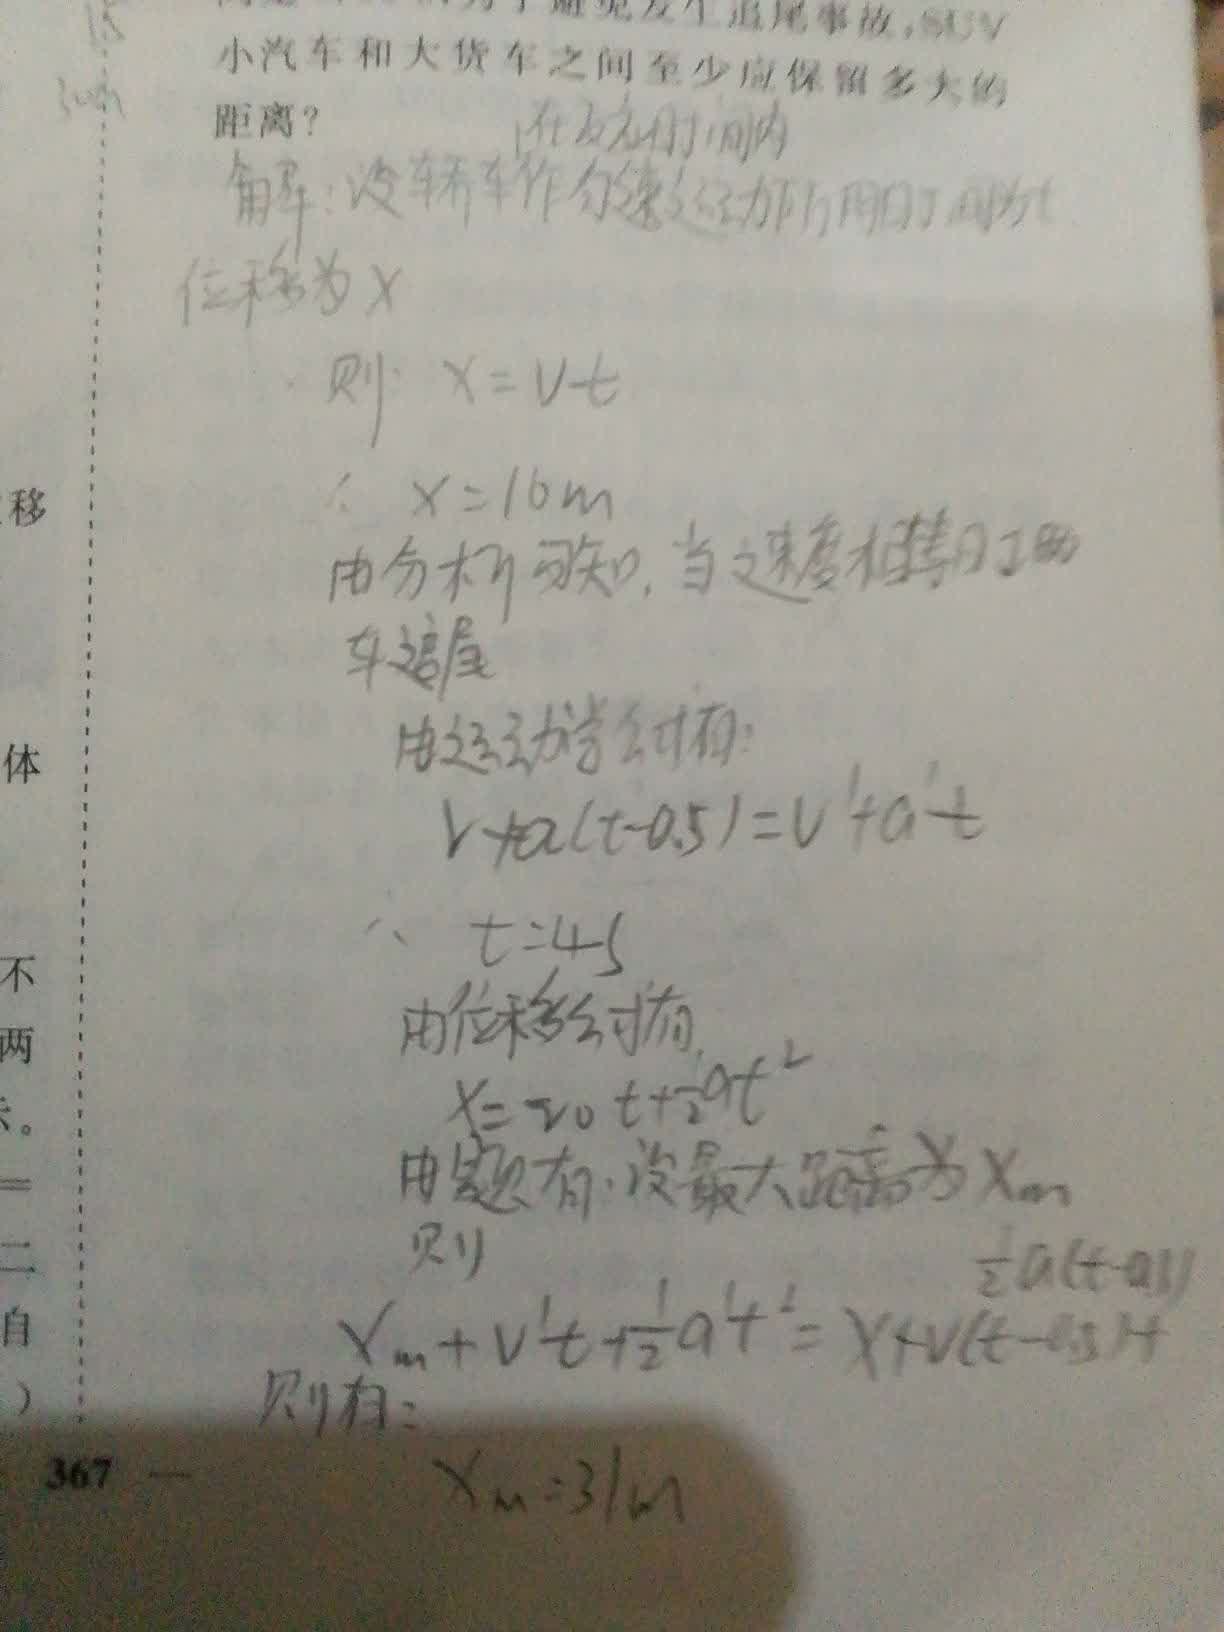 小汽车和大货车之间至少应保留多大的
距离?
在反应时间内
解:设轿车作匀速运动所用时间为t
位移为x
则: x=vt
∴ x=10m
由分析可知,当速度相等时两
车追尾
由运动学公式有:
v+a(t-0.5)=v'+a't
∴ t=4s
由位移公式有
x=v0t+½at²
由题有:设最大距离为xm
则
½a(t-0.5)
xm+v't+½a't²=x+v(t-0.5)+
则有:
xm=31m
移
体
不
两
。
=
二
自
)
367